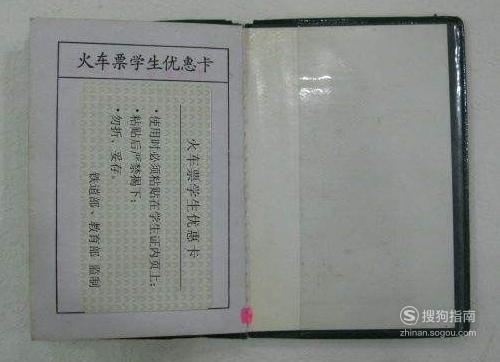 火车票学生优惠卡
火车票学生优惠卡
·使用时必须粘贴在学生证内页上；
·粘贴后严禁揭下；
·勿折、妥存。
铁道部、教育部 监制
搜狗指南
zhinan.sogou.com